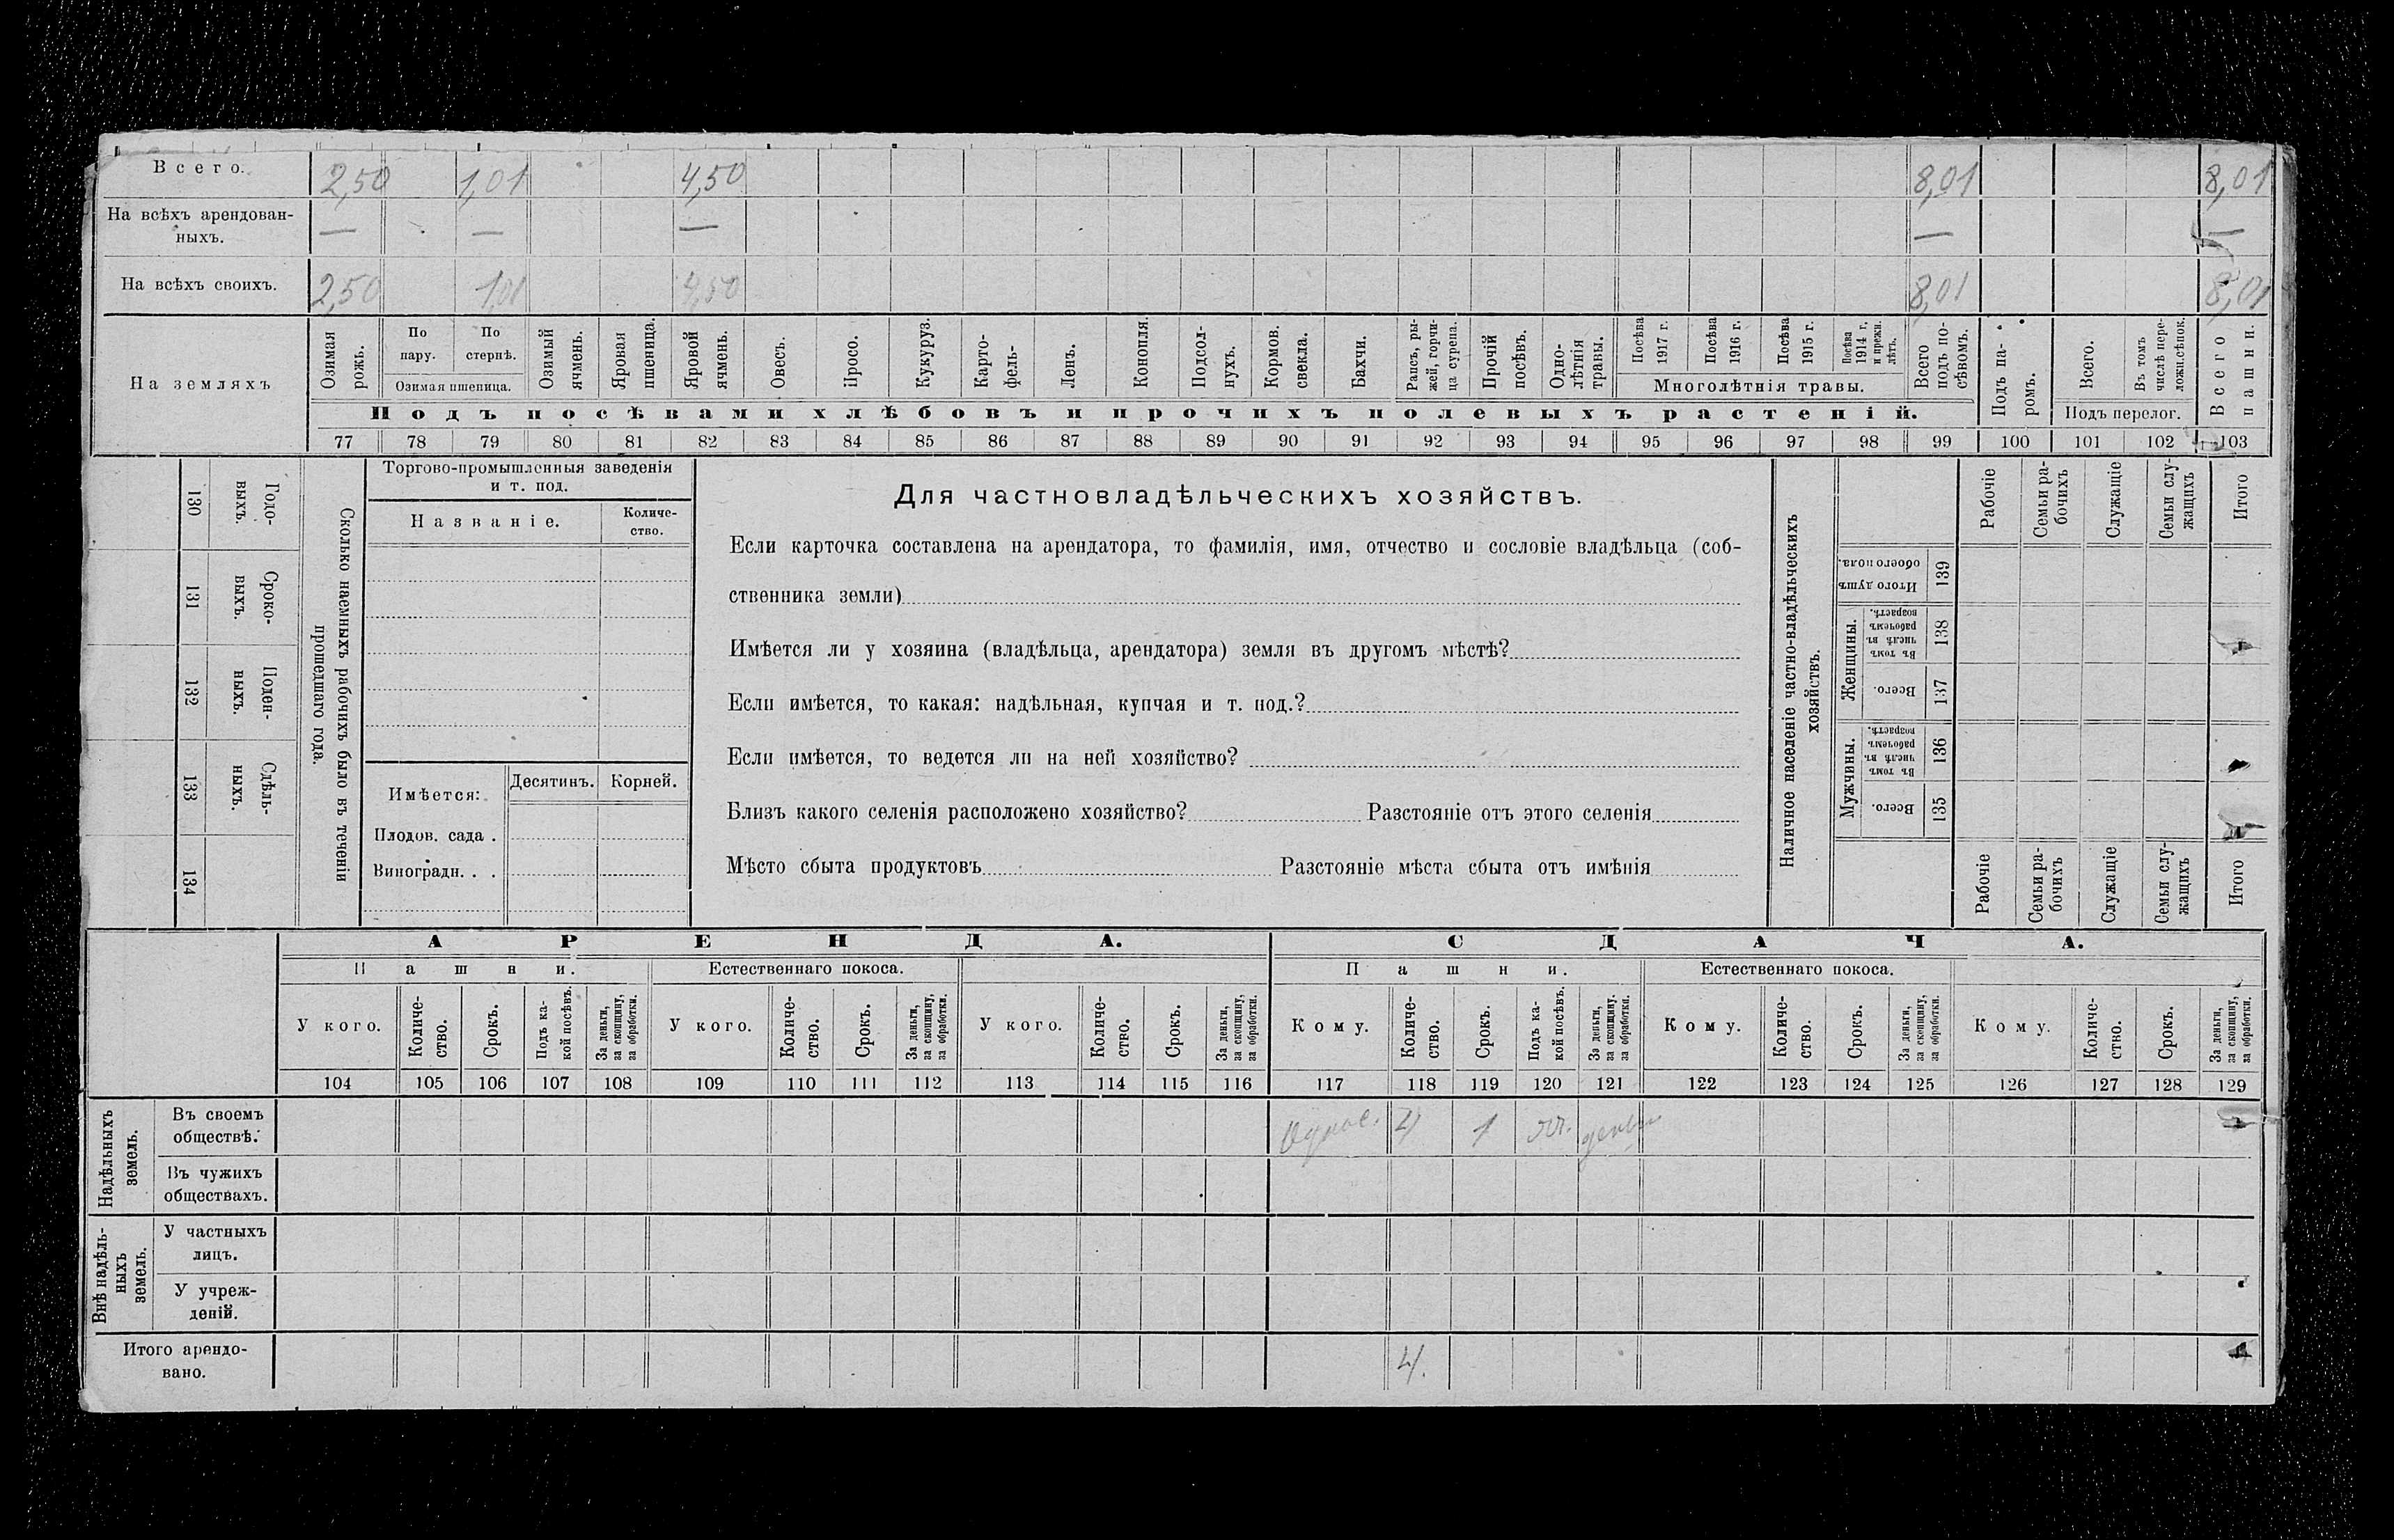 Всего. 2,50 1,01 4,50 8,01 8,01
На всѣхъ арендован-
ныхъ. — — — — —
На всѣхъ своихъ. 2,50 1,01 4,50 8,01 8,01
На земляхъ
Озимая рожь.
По пару.
По стернѣ.
Озимая пшеница.
Озимый ячмень.
Яровая пшеница.
Яровой ячмень.
Овесъ.
Просо.
Кукуруз.
Карто-
фель-
Ленъ.
Конопля.
Подсол-
нухъ.
Кормов.
свекла.
Бахчи.
Рапсъ, ры-
жей, горчи-
ца сурепа.
Прочій
посѣвъ.
Одно-
лѣтнія
травы.
Посѣва
1917 г.
Посѣва
1916 г.
Посѣва
1915 г.
Посѣва
1914 г.
и прежн.
лѣтъ.
Многолѣтнія травы.
Всего
подъ по-
сѣвомъ.
Подъ па-
ромъ.
Всего.
Въ томъ
числѣ пере-
ложн.сѣнок.
Подъ перелог.
Всего
пашни.
Подъ посѣвами хлѣбовъ и прочихъ полевыхъ растеній.
77 78 79 80 81 82 83 84 85 86 87 88 89 90 91 92 93 94 95 96 97 98 99 100 101 102 103
130
Годо-
выхъ.
131
Сроко-
выхъ.
132
Поден-
ныхъ.
133
Сдѣль-
ныхъ.
134
Сколько наемныхъ рабочихъ было въ теченіи
прошедшаго года.
Торгово-промышленныя заведенія
и т. под.
Названіе.
Количе-
ство.
Имѣется:
Десятинъ.
Корней.
Плодов. сада .
Виноградн. . .
Для частновладѣльческихъ хозяйствъ.
Если карточка составлена на арендатора, то фамилія, имя, отчество и сословіе владѣльца (соб-
ственника земли)
Имѣется ли у хозяина (владѣльца, арендатора) земля въ другомъ мѣстѣ?
Если имѣется, то какая: надѣльная, купчая и т. под.?
Если имѣется, то ведется ли на ней хозяйство?
Близъ какого селенія расположено хозяйство? Разстояніе отъ этого селенія
Мѣсто сбыта продуктовъ Разстояніе мѣста сбыта отъ имѣнія
Наличное населеніе частно-владѣльческихъ
хозяйствъ.
Рабочіе
Семьи ра-
бочихъ
Служащіе
Семьи слу-
жащихъ
Итого
Итого душъ
обоего пола.
139
Женщины.
Въ томъ
числѣ въ
рабочемъ
возрастѣ.
138
Всего.
137
Мужчины.
Въ томъ
числѣ въ
рабочемъ
возрастѣ.
136
Всего.
135
Рабочіе
Семьи ра-
бочихъ
Служащіе
Семьи слу-
жащихъ
Итого
АРЕНДА. СДАЧА.
Пашни. Естественнаго покоса. Пашни. Естественнаго покоса.
У кого.
Количе-
ство.
Срокъ.
Подъ ка-
кой посѣвъ.
За деньги,
за скопщину,
за обработки.
У кого.
Количе-
ство.
Срокъ.
За деньги,
за скопщину,
за обработки.
У кого.
Количе-
ство.
Срокъ.
За деньги,
за скопщину,
за обработки.
Кому.
Количе-
ство.
Срокъ.
Подъ ка-
кой посѣвъ.
За деньги,
за скопщину.
за обработки.
Кому.
Количе-
ство.
Срокъ.
За деньги,
за скопщину,
за обработки.
Кому.
Количе-
ство.
Срокъ.
За деньги,
за скопщину,
за обработки.
104 105 106 107 108 109 110 111 112 113 114 115 116 117 118 119 120 121 122 123 124 125 126 127 128 129
Надѣльныхъ
земель.
Въ своемъ
обществѣ. 4 1 яч. деньги
Въ чужихъ
обществахъ.
Внѣ надѣль-
ныхъ
земель.
У частныхъ
лицъ.
У учреж-
деній.
Итого арендо-
вано. 4.